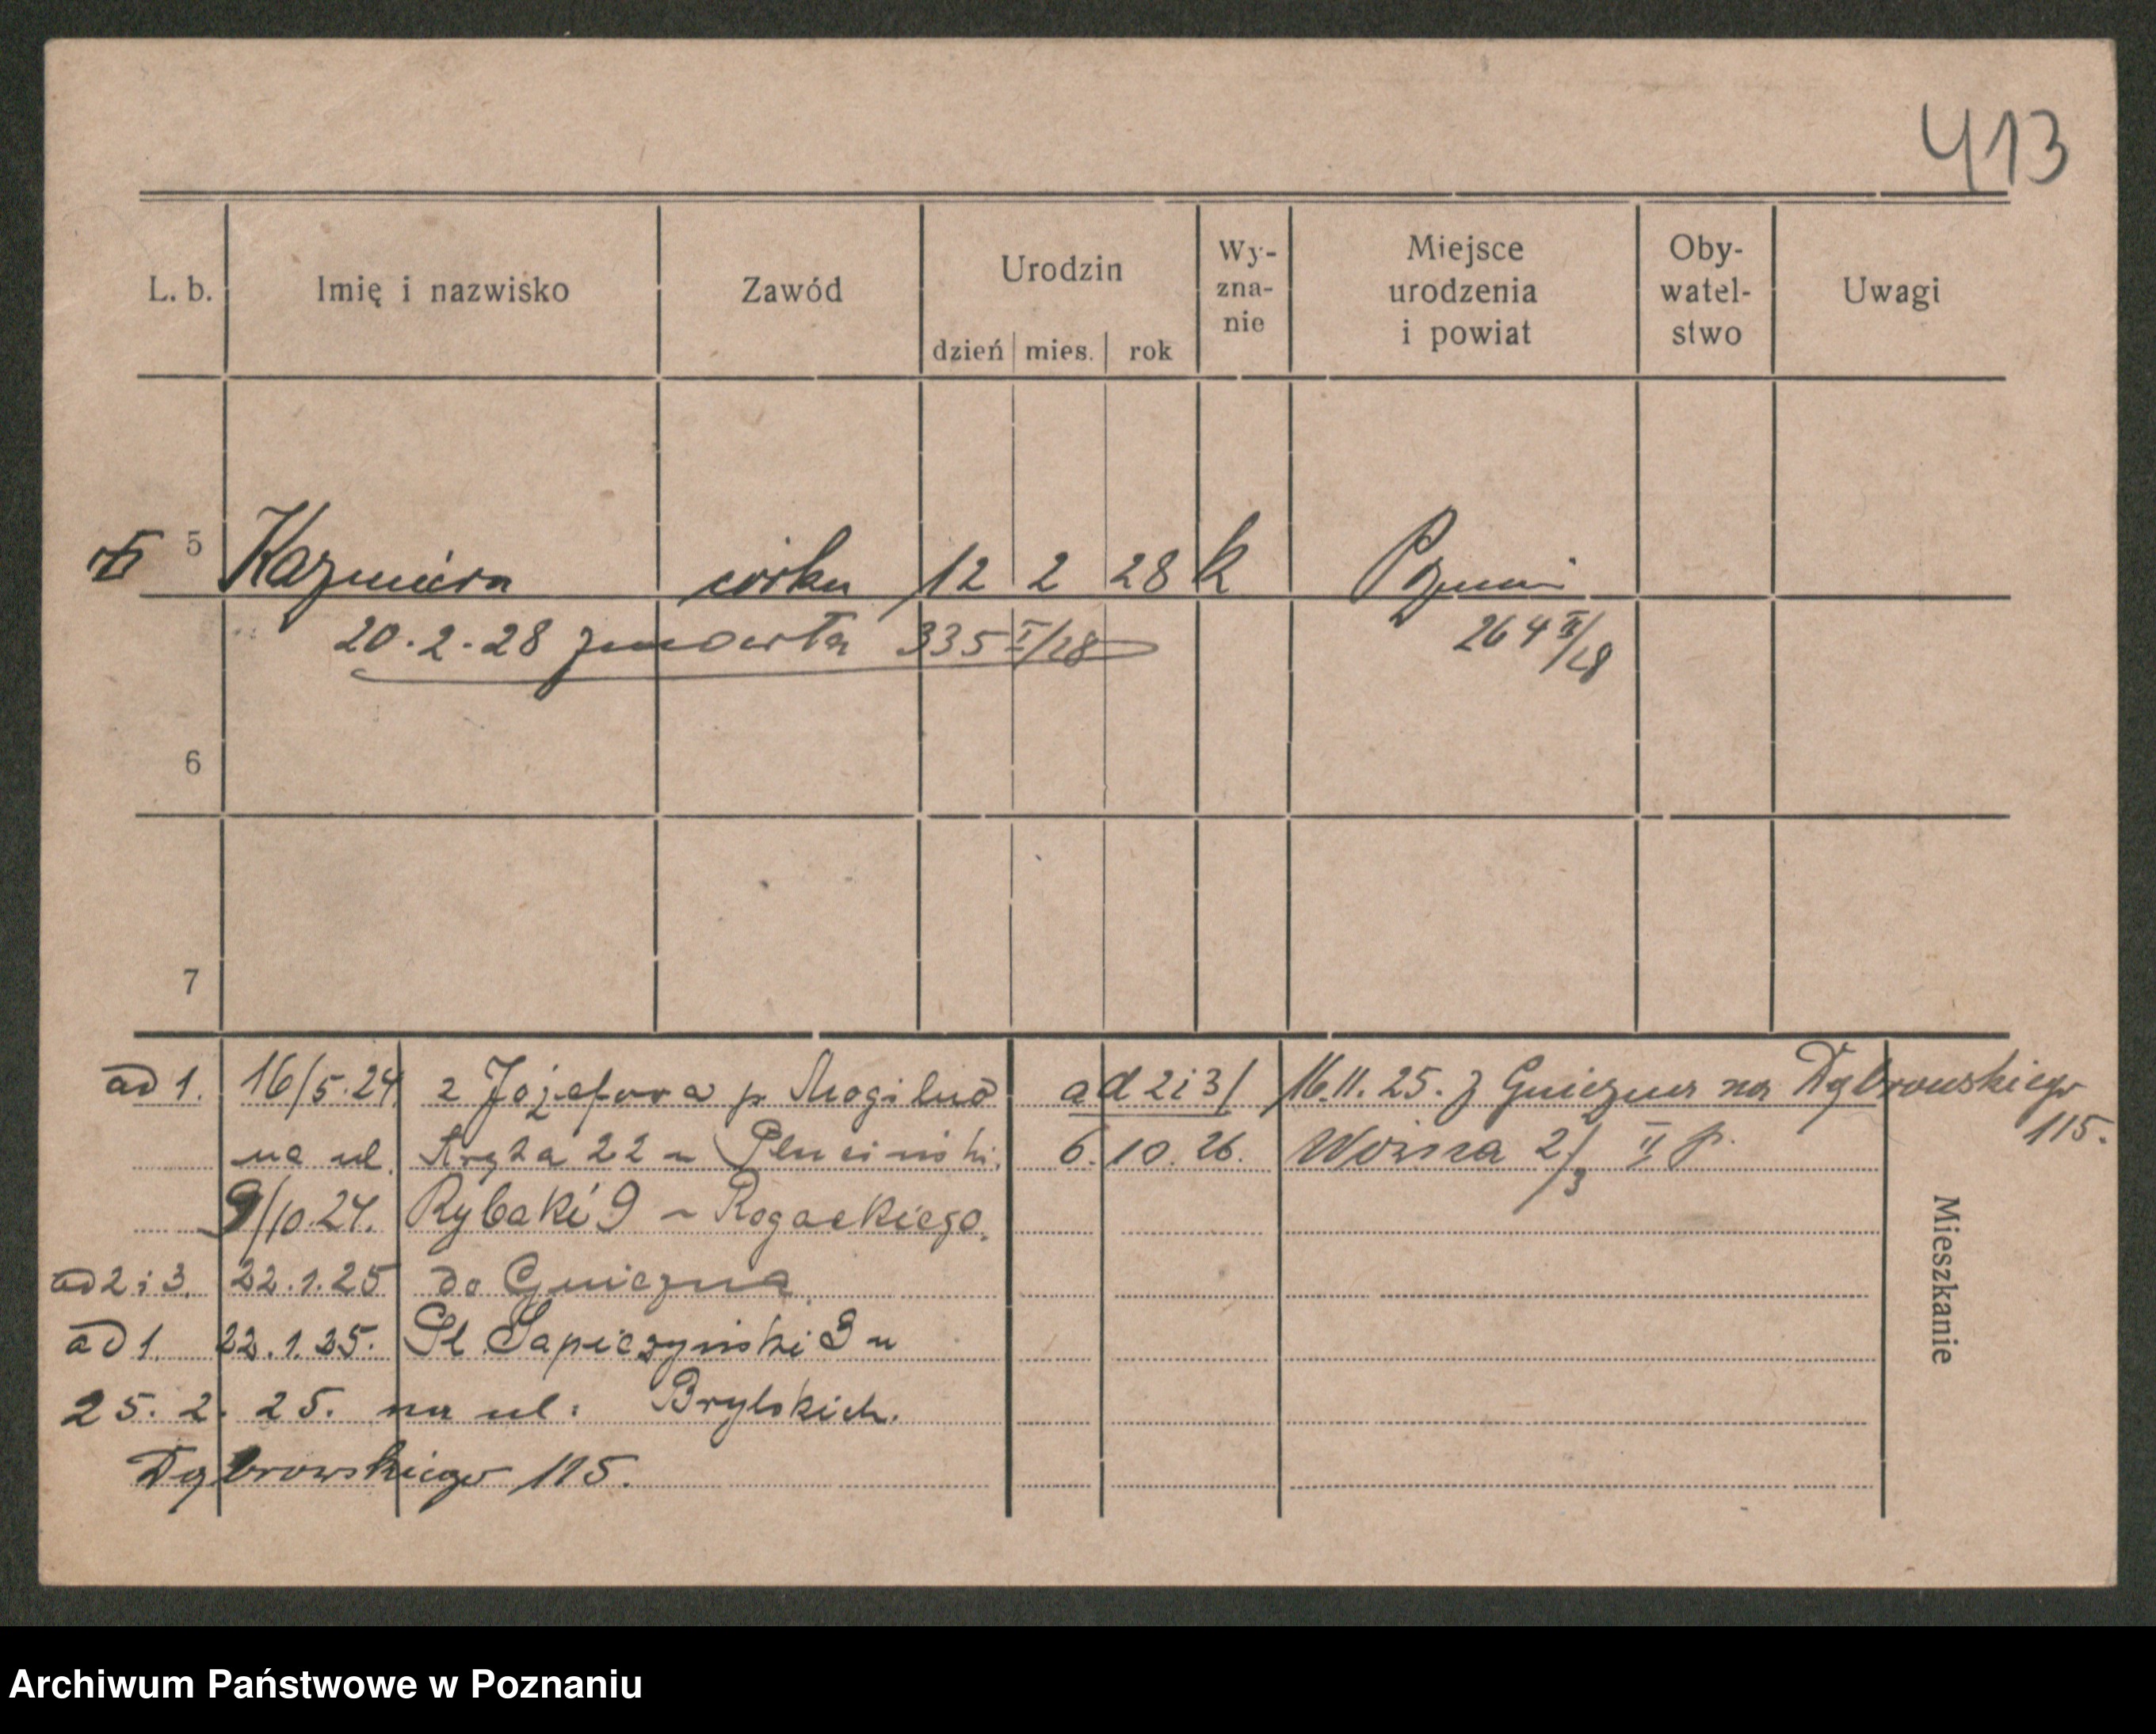 413
L. b. Imię i nazwisko Zawód Urodzin Wy- zna- nie Miejsce urodzenia i powiat Oby- watel- stwo Uwagi
dzień mies. rok
5 Kazmiera córka 12 2 28 k Poznań
20.2.28 zmarła 335 I/28 264 II/28
6
7
ad 1. 16/5.24 z Józefowa p. Mogilno
na ul. 22 u Pluciński.
9/10.24. Rybaki 9 u Rogackiego.
ad 2 i 3. 22.1.25 do Gniezna.
ad 1. 22.1.25. Pl Sapieżyński 3 u
25.2.25. na ul: Brylskich.
Dąbrowskiego 115.
ad 2 i 3/ 16.11.25. z Gniezna na Dąbrowskiego
115.
6.10.26. Woźna 2/3 II p.
Mieszkanie
Archiwum Państwowe w Poznaniu